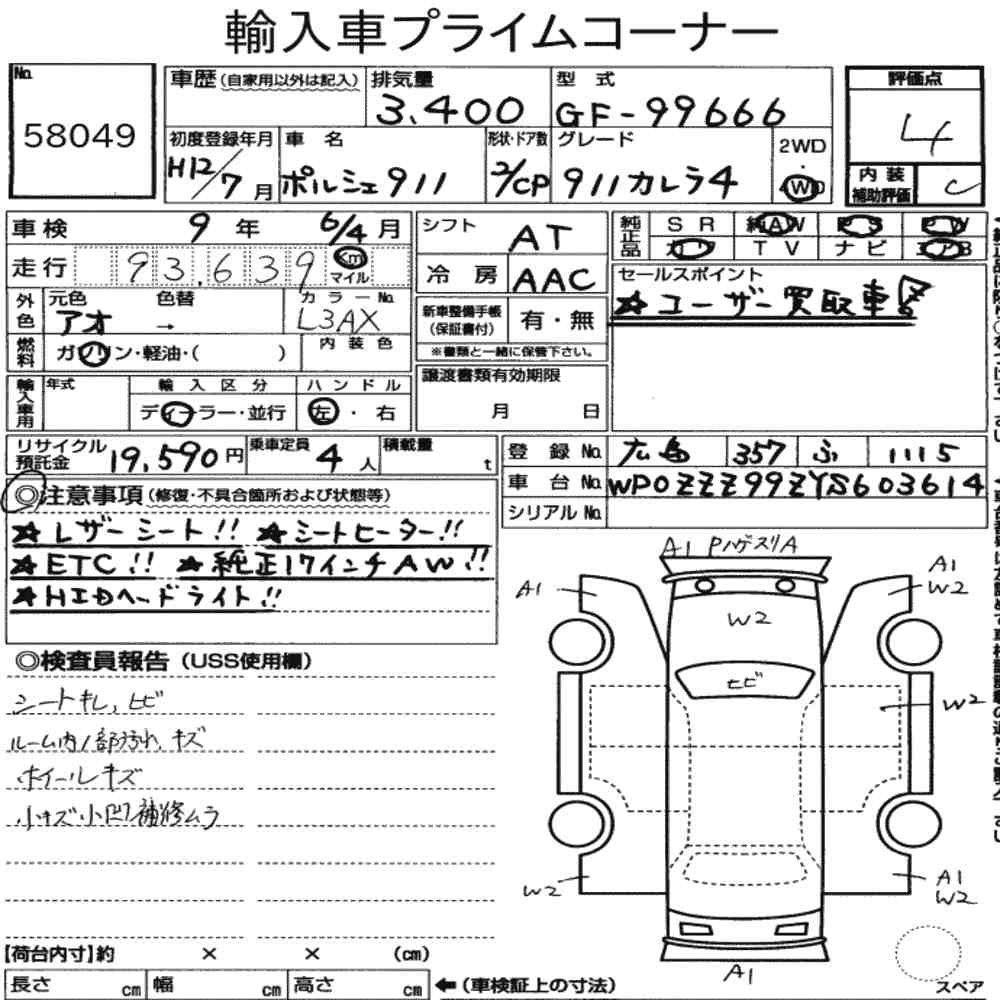 輸入車プライムコーナー
No.
58049
車歴（自家用以外は記入）
排気量
3.400
型 式
GF-99666
評価点
4
初度登録年月
H12/7月
車 名
ポルシェ911
形状・ドア数
2/CP
グレード
911カレラ4
2WD
・
4WD
内 装
補助評価
C
車検 9年 6/4月
シフト AT
純正品 SR 純AW PS PW
カワ TV ナビ エアB
走行 93,639 Km
マイル
冷 房 AAC
セールスポイント
☆ユーザー買取車!
外色 元色 色替 カラーNo.
アオ → L3AX
新車整備手帳
（保証書付）
有・無
※書類と一緒に保管下さい。
燃料 ガソリン・軽油・（ ） 内装色
譲渡書類有効期限
月 日
輸入車用 年式 輸入区分 ハンドル
ディーラー・並行 左・右
リサイクル
預託金 19,590円 乗車定員 4人 積載量 t
登録No. 広島 357 ふ 1115
車台No. WP0ZZZ99ZYS603614
シリアルNo.
◎注意事項（修復・不具合箇所および状態等）
☆レザーシート!! ☆シートヒーター!!
☆ETC!! ☆純正17インチAW!!
☆HIDヘッドライト!!
◎検査員報告（USS使用欄）
シートキレ,ヒビ
ルーム内1部汚れ,キズ
ホイールキズ
小キズ小凹補修ムラ
A1 PハゲスリA
A1
A1
W2
W2
ヒビ
W2
W2
A1
W2
A1
【荷台内寸】約 × × （cm）
長さ cm 幅 cm 高さ cm ←（車検証上の寸法）
スペア